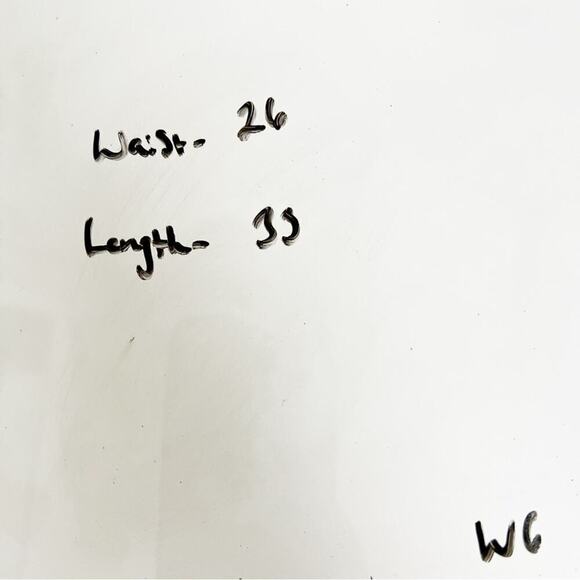 Waist- 26
Length- 35
W6